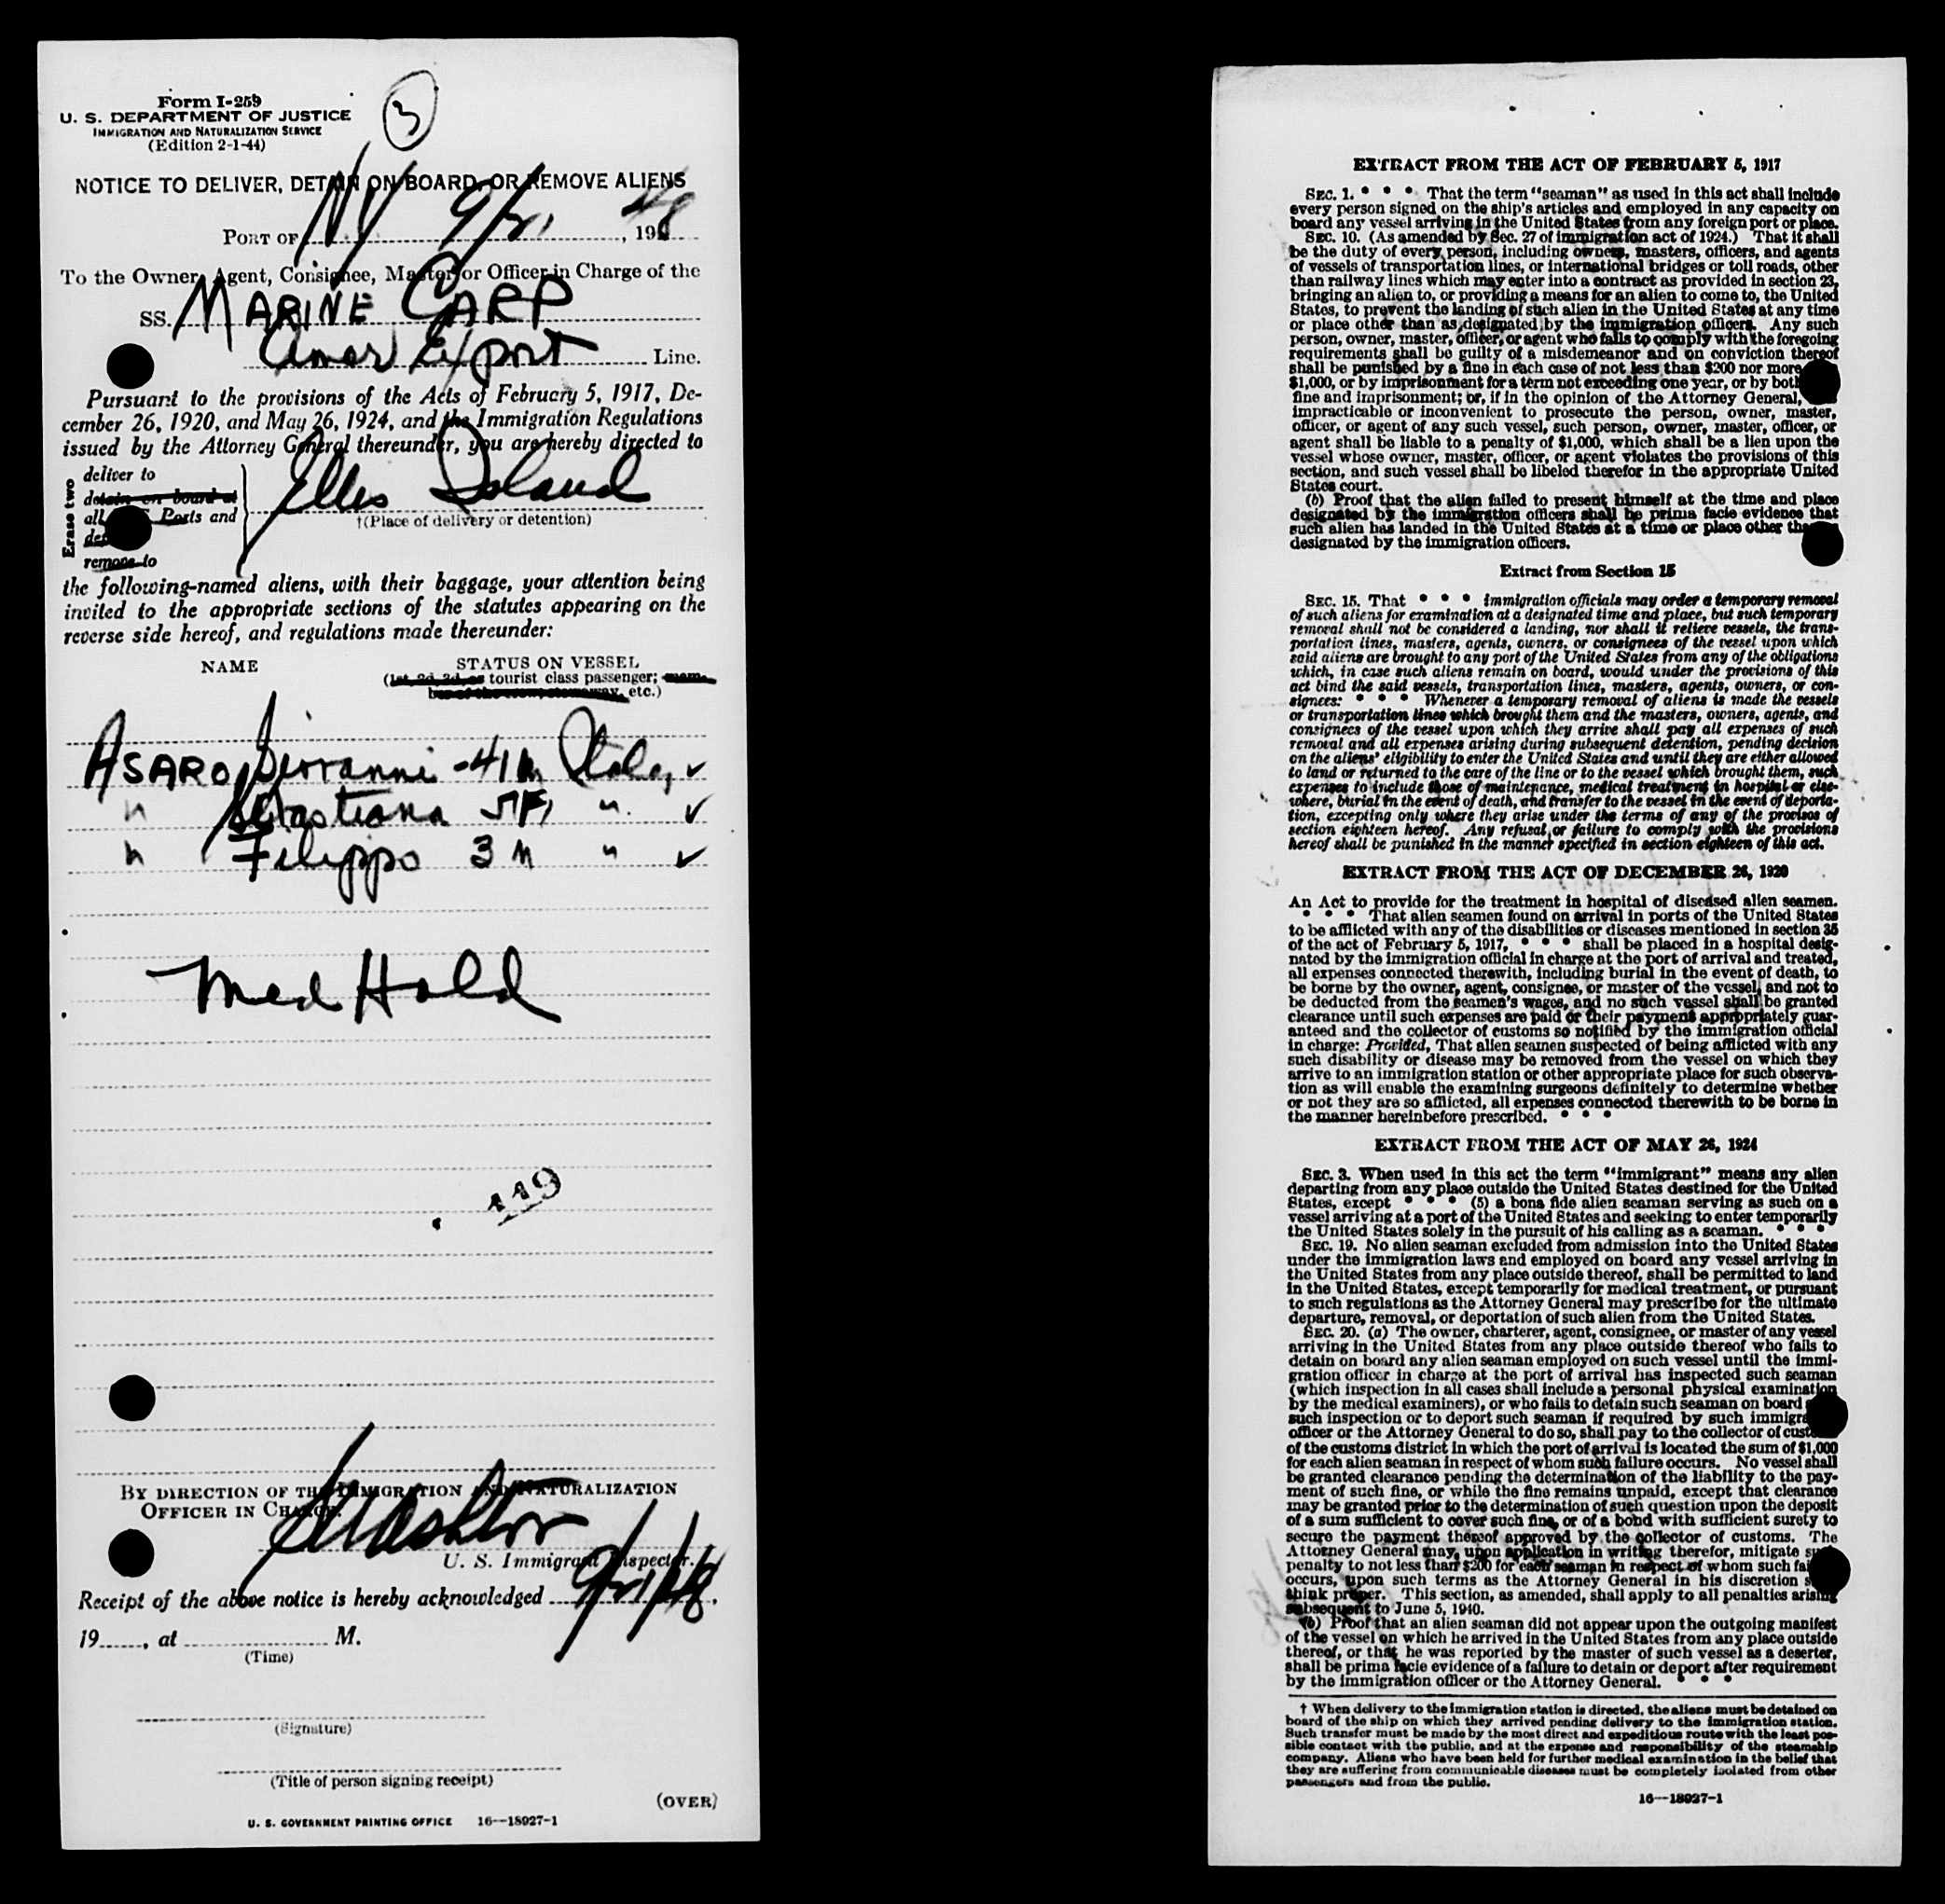 Form I-259
U. S. DEPARTMENT OF JUSTICE
IMMIGRATION AND NATURALIZATION SERVICE
(Edition 2-1-44)
3
NOTICE TO DELIVER, DETAIN ON BOARD, OR REMOVE ALIENS
PORT OF NY 9/21, 1948
To the Owner, Agent, Consignee, Master, or Officer in Charge of the
SS. MARINE CARP
Amer Export Line.
Pursuant to the provisions of the Acts of February 5, 1917, De-
cember 26, 1920, and May 26, 1924, and the Immigration Regulations
issued by the Attorney General thereunder, you are hereby directed to
Erase two
deliver to
detain on board at
all Ports and
remove to
Ellis Island
†(Place of delivery or detention)
the following-named aliens, with their baggage, your attention being
invited to the appropriate sections of the statutes appearing on the
reverse side hereof, and regulations made thereunder:
NAME STATUS ON VESSEL
(1st, 2d, 3d, or tourist class passenger; mem-
ber of the crew, stowaway, etc.)
ASARO Giovanni - 41 M Italy ✓
" Sebastiana 5 F, " ✓
" Filippo 3 M " ✓
Med Hold
119
BY DIRECTION OF THE IMMIGRATION AND NATURALIZATION
OFFICER IN CHARGE.
U. S. Immigrant Inspector.
Receipt of the above notice is hereby acknowledged 9/21/48,
19......, at .................... M.
(Time)
(Signature)
(Title of person signing receipt)
(OVER)
U. S. GOVERNMENT PRINTING OFFICE 16—18927-1
EXTRACT FROM THE ACT OF FEBRUARY 5, 1917
SEC. 1. * * * That the term "seaman" as used in this act shall include
every person signed on the ship's articles and employed in any capacity on
board any vessel arriving in the United States from any foreign port or place.
SEC. 10. (As amended by Sec. 27 of immigration act of 1924.) That it shall
be the duty of every person, including owners, masters, officers, and agents
of vessels of transportation lines, or international bridges or toll roads, other
than railway lines which may enter into a contract as provided in section 23,
bringing an alien to, or providing a means for an alien to come to, the United
States, to prevent the landing of such alien in the United States at any time
or place other than as designated by the immigration officers. Any such
person, owner, master, officer, or agent who fails to comply with the foregoing
requirements shall be guilty of a misdemeanor and on conviction thereof
shall be punished by a fine in each case of not less than $200 nor more
$1,000, or by imprisonment for a term not exceeding one year, or by both
fine and imprisonment; or, if in the opinion of the Attorney General,
impracticable or inconvenient to prosecute the person, owner, master,
officer, or agent of any such vessel, such person, owner, master, officer, or
agent shall be liable to a penalty of $1,000, which shall be a lien upon the
vessel whose owner, master, officer, or agent violates the provisions of this
section, and such vessel shall be libeled therefor in the appropriate United
States court.
(b) Proof that the alien failed to present himself at the time and place
designated by the immigration officers shall be prima facie evidence that
such alien has landed in the United States at a time or place other than
designated by the immigration officers.
Extract from Section 15
SEC. 15. That * * * immigration officials may order a temporary removal
of such aliens for examination at a designated time and place, but such temporary
removal shall not be considered a landing, nor shall it relieve vessels, the trans-
portation lines, masters, agents, owners, or consignees of the vessel upon which
said aliens are brought to any port of the United States from any of the obligations
which, in case such aliens remain on board, would under the provisions of this
act bind the said vessels, transportation lines, masters, agents, owners, or con-
signees: * * * Whenever a temporary removal of aliens is made the vessels
or transportation lines which brought them and the masters, owners, agents, and
consignees of the vessel upon which they arrive shall pay all expenses of such
removal and all expenses arising during subsequent detention, pending decision
on the aliens' eligibility to enter the United States and until they are either allowed
to land or returned to the care of the line or to the vessel which brought them, such
expenses to include those of maintenance, medical treatment in hospital or else-
where, burial in the event of death, and transfer to the vessel in the event of deporta-
tion, excepting only where they arise under the terms of any of the provisos of
section eighteen hereof. Any refusal or failure to comply with the provisions
hereof shall be punished in the manner specified in section eighteen of this act.
EXTRACT FROM THE ACT OF DECEMBER 26, 1920
An Act to provide for the treatment in hospital of diseased alien seamen.
* * * That alien seamen found on arrival in ports of the United States
to be afflicted with any of the disabilities or diseases mentioned in section 35
of the act of February 5, 1917, * * * shall be placed in a hospital desig-
nated by the immigration official in charge at the port of arrival and treated,
all expenses connected therewith, including burial in the event of death, to
be borne by the owner, agent, consignee, or master of the vessel, and not to
be deducted from the seamen's wages, and no such vessel shall be granted
clearance until such expenses are paid or their payment appropriately guar-
anteed and the collector of customs so notified by the immigration official
in charge: Provided, That alien seamen suspected of being afflicted with any
such disability or disease may be removed from the vessel on which they
arrive to an immigration station or other appropriate place for such observa-
tion as will enable the examining surgeons definitely to determine whether
or not they are so afflicted, all expenses connected therewith to be borne in
the manner hereinbefore prescribed. * * *
EXTRACT FROM THE ACT OF MAY 26, 1924
SEC. 3. When used in this act the term "immigrant" means any alien
departing from any place outside the United States destined for the United
States, except * * * (5) a bona fide alien seaman serving as such on a
vessel arriving at a port of the United States and seeking to enter temporarily
the United States solely in the pursuit of his calling as a seaman. * * *
SEC. 19. No alien seaman excluded from admission into the United States
under the immigration laws and employed on board any vessel arriving in
the United States from any place outside thereof, shall be permitted to land
in the United States, except temporarily for medical treatment, or pursuant
to such regulations as the Attorney General may prescribe for the ultimate
departure, removal, or deportation of such alien from the United States.
SEC. 20. (a) The owner, charterer, agent, consignee, or master of any vessel
arriving in the United States from any place outside thereof who fails to
detain on board any alien seaman employed on such vessel until the immi-
gration officer in charge at the port of arrival has inspected such seaman
(which inspection in all cases shall include a personal physical examination
by the medical examiners), or who fails to detain such seaman on board
such inspection or to deport such seaman if required by such immigra
officer or the Attorney General to do so, shall pay to the collector of customs
of the customs district in which the port of arrival is located the sum of $1,000
for each alien seaman in respect of whom such failure occurs. No vessel shall
be granted clearance pending the determination of the liability to the pay-
ment of such fine, or while the fine remains unpaid, except that clearance
may be granted prior to the determination of such question upon the deposit
of a sum sufficient to cover such fine, or of a bond with sufficient surety to
secure the payment thereof approved by the collector of customs. The
Attorney General may, upon application in writing therefor, mitigate such
penalty to not less than $200 for each seaman in respect of whom such failure
occurs, upon such terms as the Attorney General in his discretion shall
think proper. This section, as amended, shall apply to all penalties arising
subsequent to June 5, 1940.
(b) Proof that an alien seaman did not appear upon the outgoing manifest
of the vessel on which he arrived in the United States from any place outside
thereof, or that he was reported by the master of such vessel as a deserter,
shall be prima facie evidence of a failure to detain or deport after requirement
by the immigration officer or the Attorney General. * * *
† When delivery to the immigration station is directed, the aliens must be detained on
board of the ship on which they arrived pending delivery to the immigration station.
Such transfer must be made by the most direct and expeditious route with the least pos-
sible contact with the public, and at the expense and responsibility of the steamship
company. Aliens who have been held for further medical examination in the belief that
they are suffering from communicable diseases must be completely isolated from other
passengers and from the public.
16—18927-1